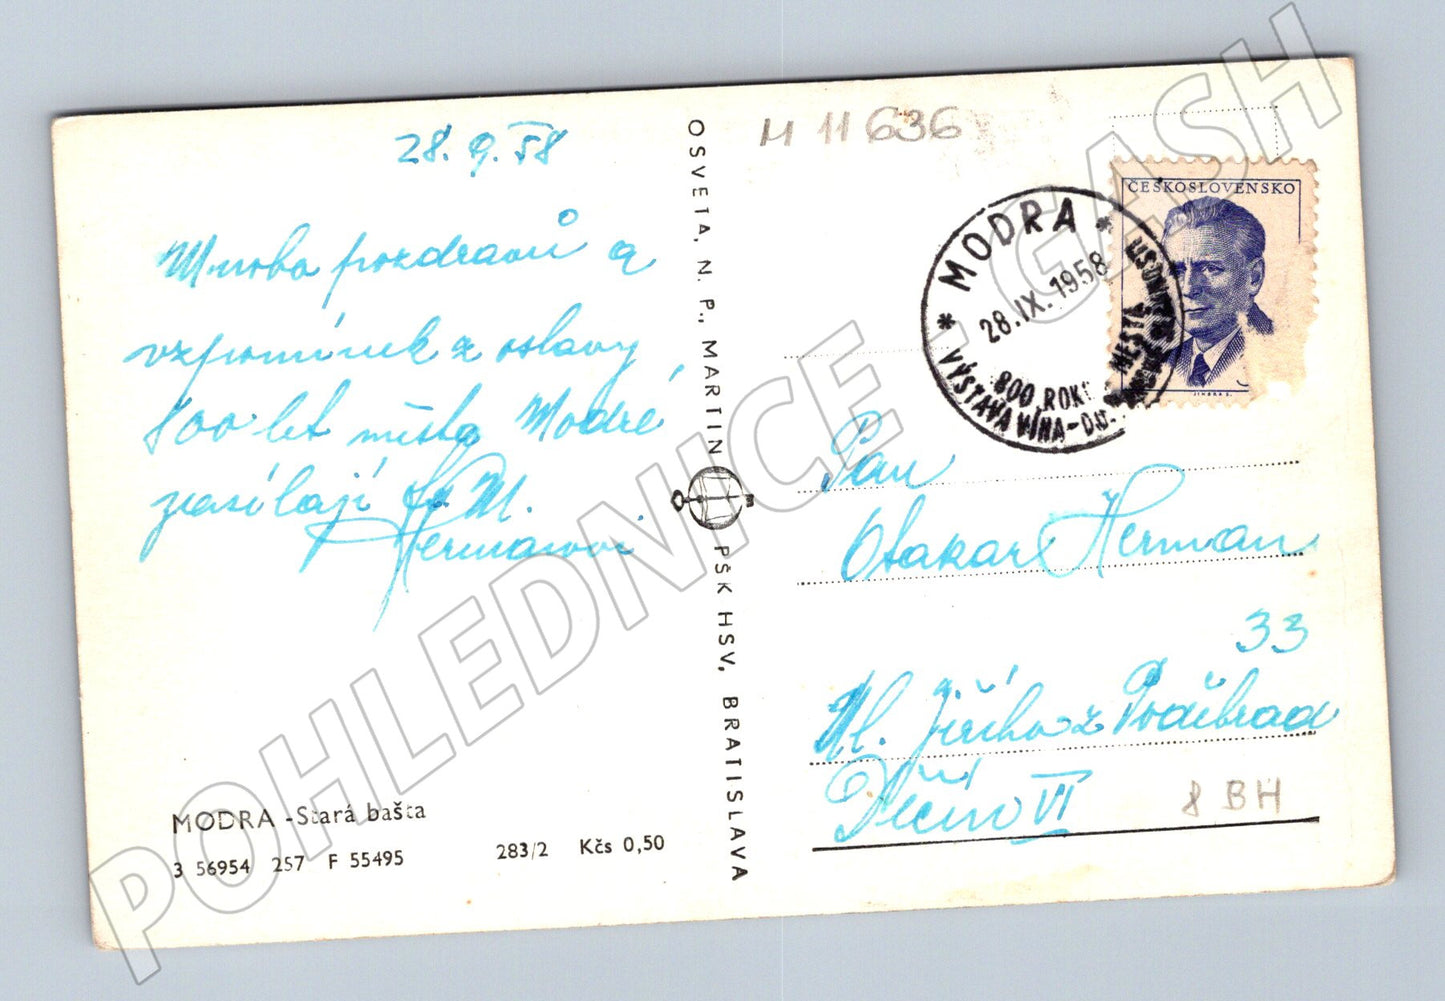 28. 9. 58
Mnoho pozdravů a
vzpomínek z oslavy
800 let města Modré
zasílají
Hermanovi
MODRA - Stará bašta
3 56954 257 F 55495
283/2 Kčs 0,50
OSVETA, N. P., MARTIN
PŠK HSV, BRATISLAVA
M 11636
ČESKOSLOVENSKO
* MODRA *
28.IX.1958
800 ROK
MESTA
VÝSTAVA VÍNA
Pan
Otakar Herman
33
Ul. Jiřího z Poděbrad
Děčín VI
8 BH
POHLEDNICE - GASH